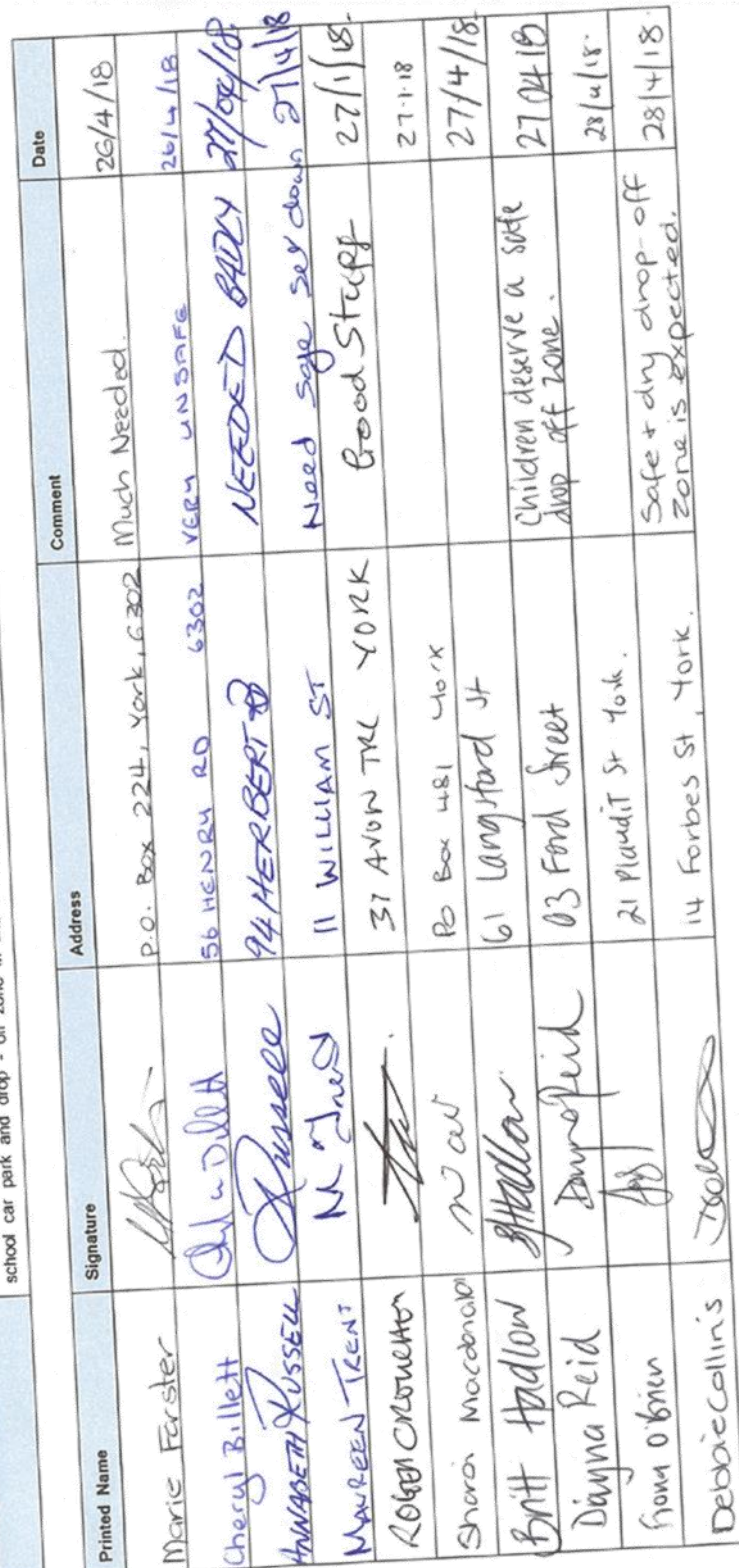 school car park and drop - off zone
Printed Name Signature Address Comment Date
Marie Forster P.O. Box 224, York, 6302 Much Needed. 26/4/18
Cheryl Billett 56 HENRY RD 6302 VERY UNSAFE 26/4/18
ANNABETH RUSSELL 94 HERBERT RD NEEDED BADLY 27/04/18
MAUREEN TRENT 11 WILLIAM ST Need safe set down 27/4/18
ROGER CROUCHER 37 AVON TRE YORK Good Stuff 27/1/18.
Sharon Macdonald PO Box 481 York 27.1.18
Britt Hadlow BHadlow 61 Langsford St 27/4/18.
Dayna Reid Dayna Reid 03 Ford Street Children deserve a safe
drop off zone. 27 04 18
Fiona O'Brien 21 Plaudit St York. 28/4/18.
Debbie Collins 14 Forbes St, York. Safe + dry drop-off
zone is expected. 28/4/18.